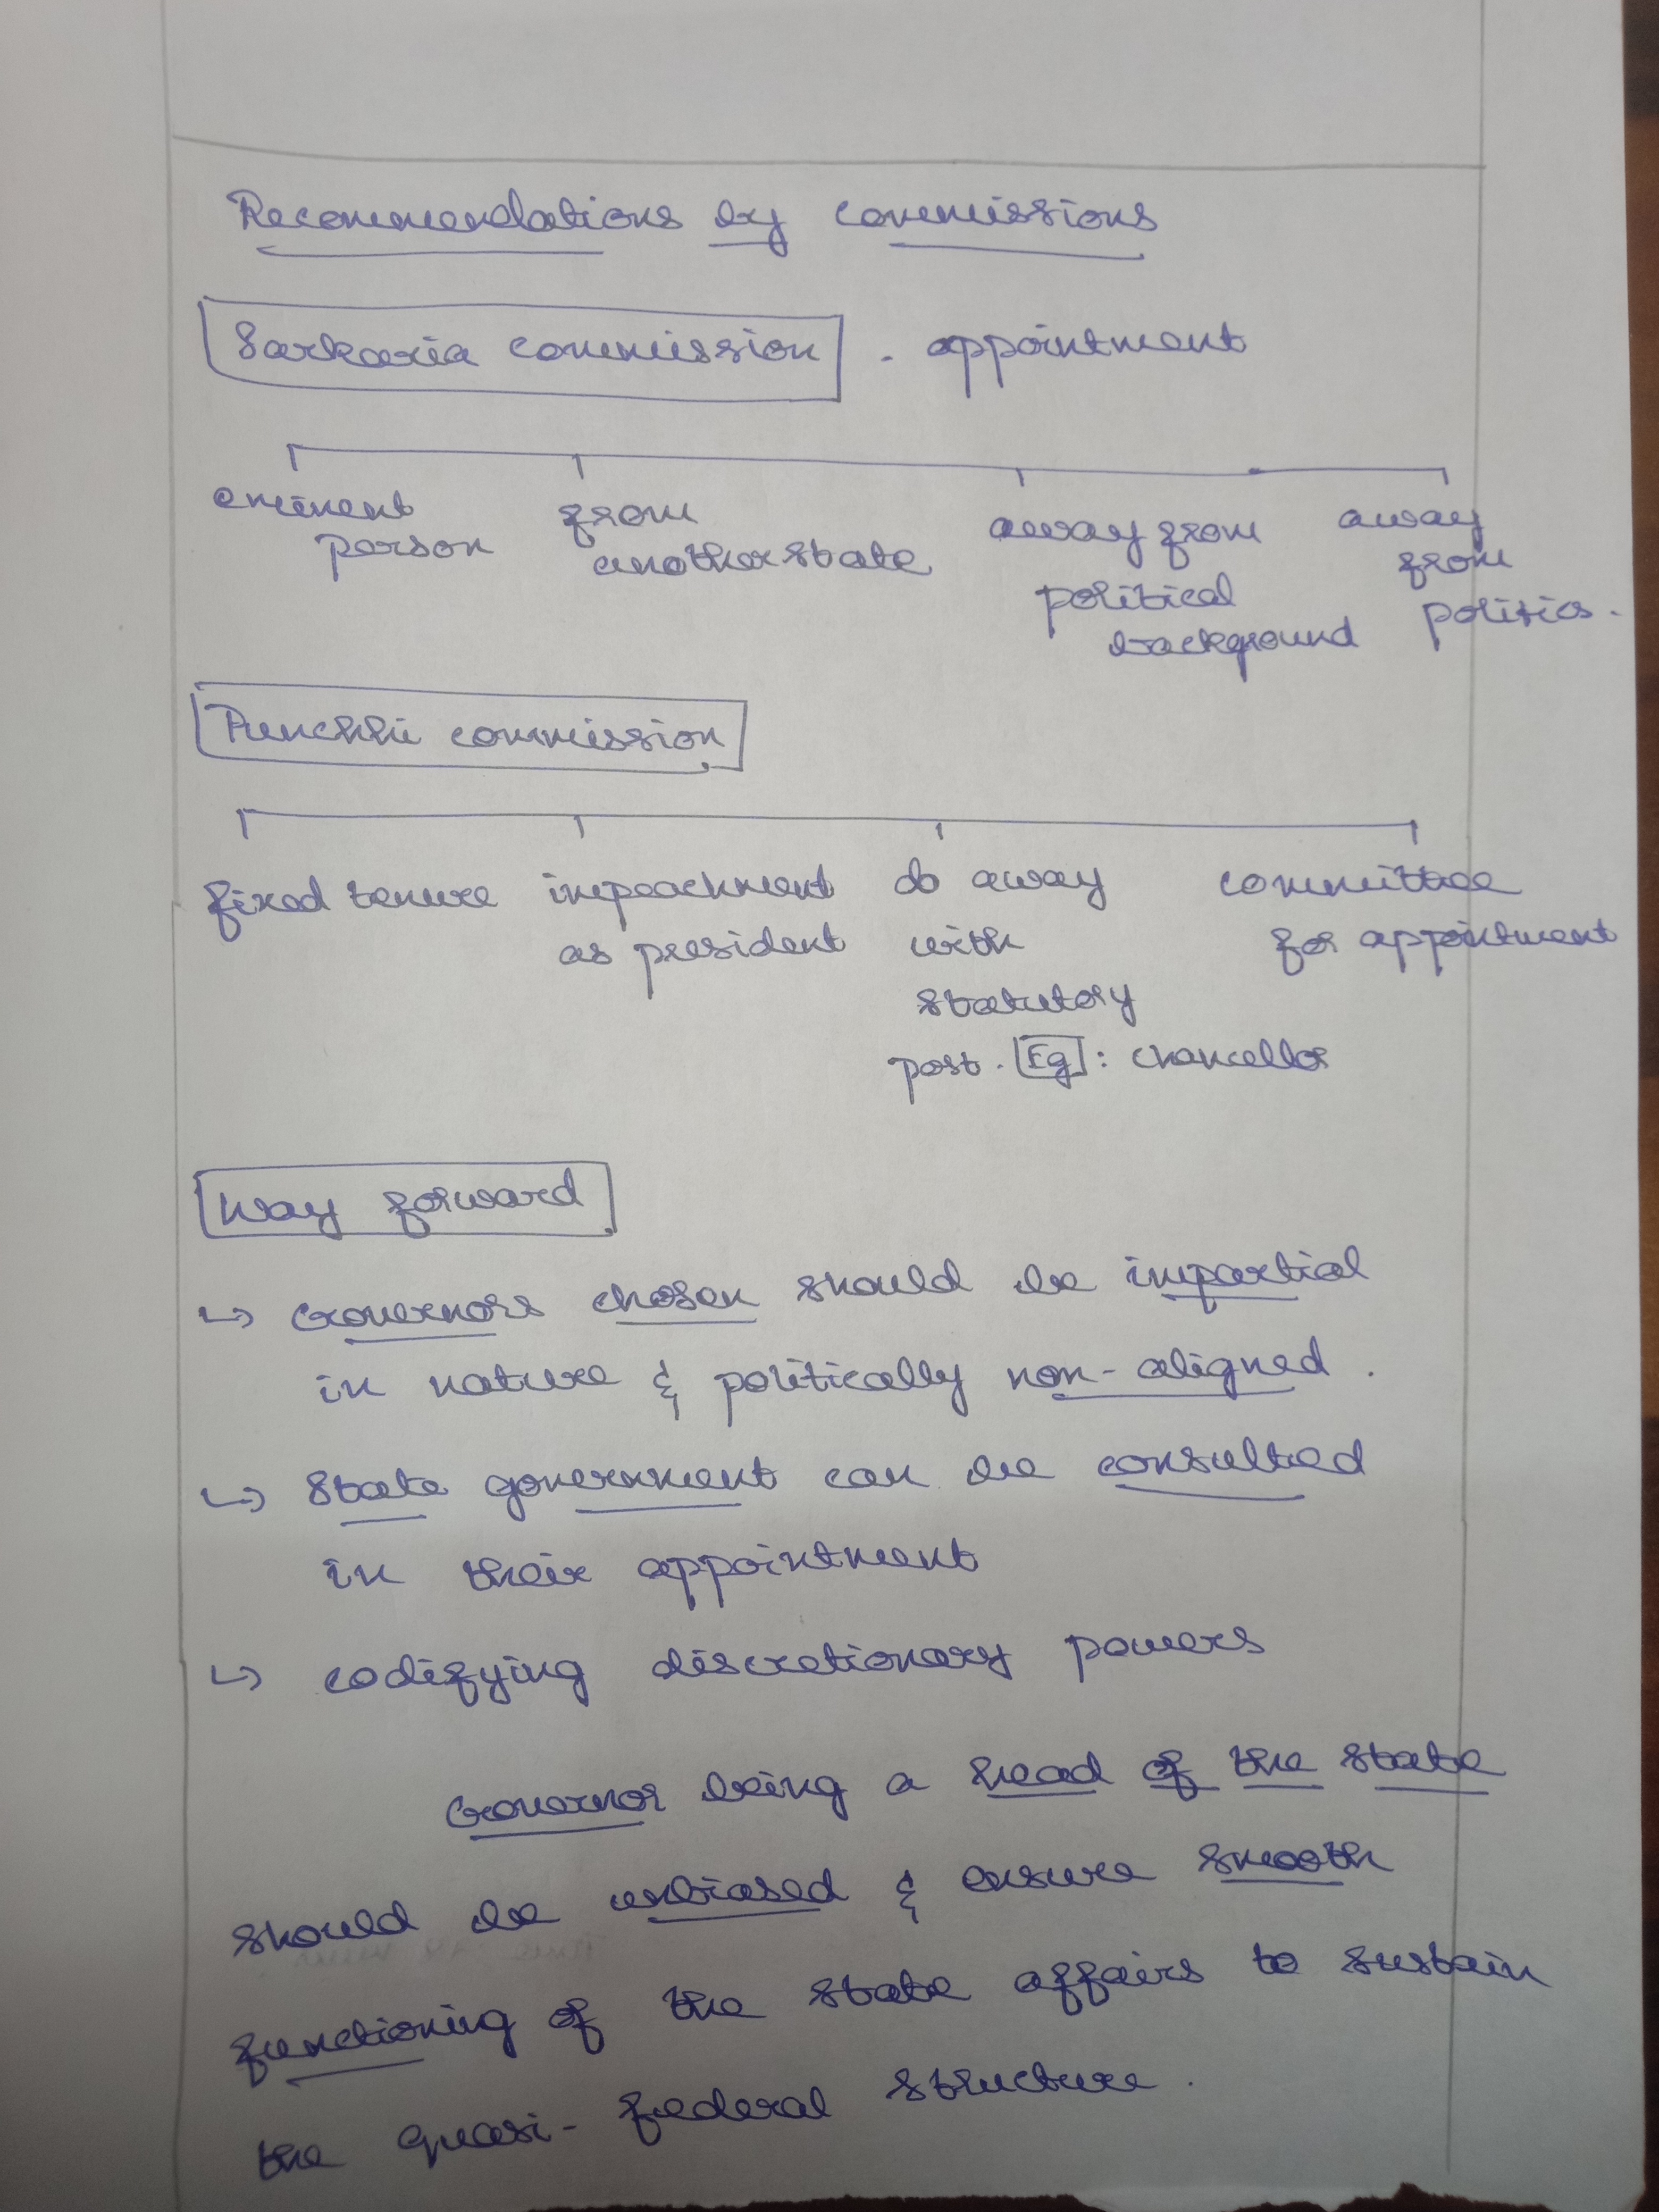 Recommendations by commissions
Sarkaria commission - appointment
eminent person
from another state
away from political background
away from politics.
Punchhi commission
fixed tenure
impeachment as president
do away with statutory post. Eg: chancellor
committee for appointment
Way forward
↳ Governors chosen should be impartial
in nature & politically non-aligned.
↳ State government can be consulted
in their appointment
↳ codifying discretionary powers
Governor being a head of the state
should be unbiased & ensure smooth
functioning of the state affairs to sustain
the quasi-federal structure.